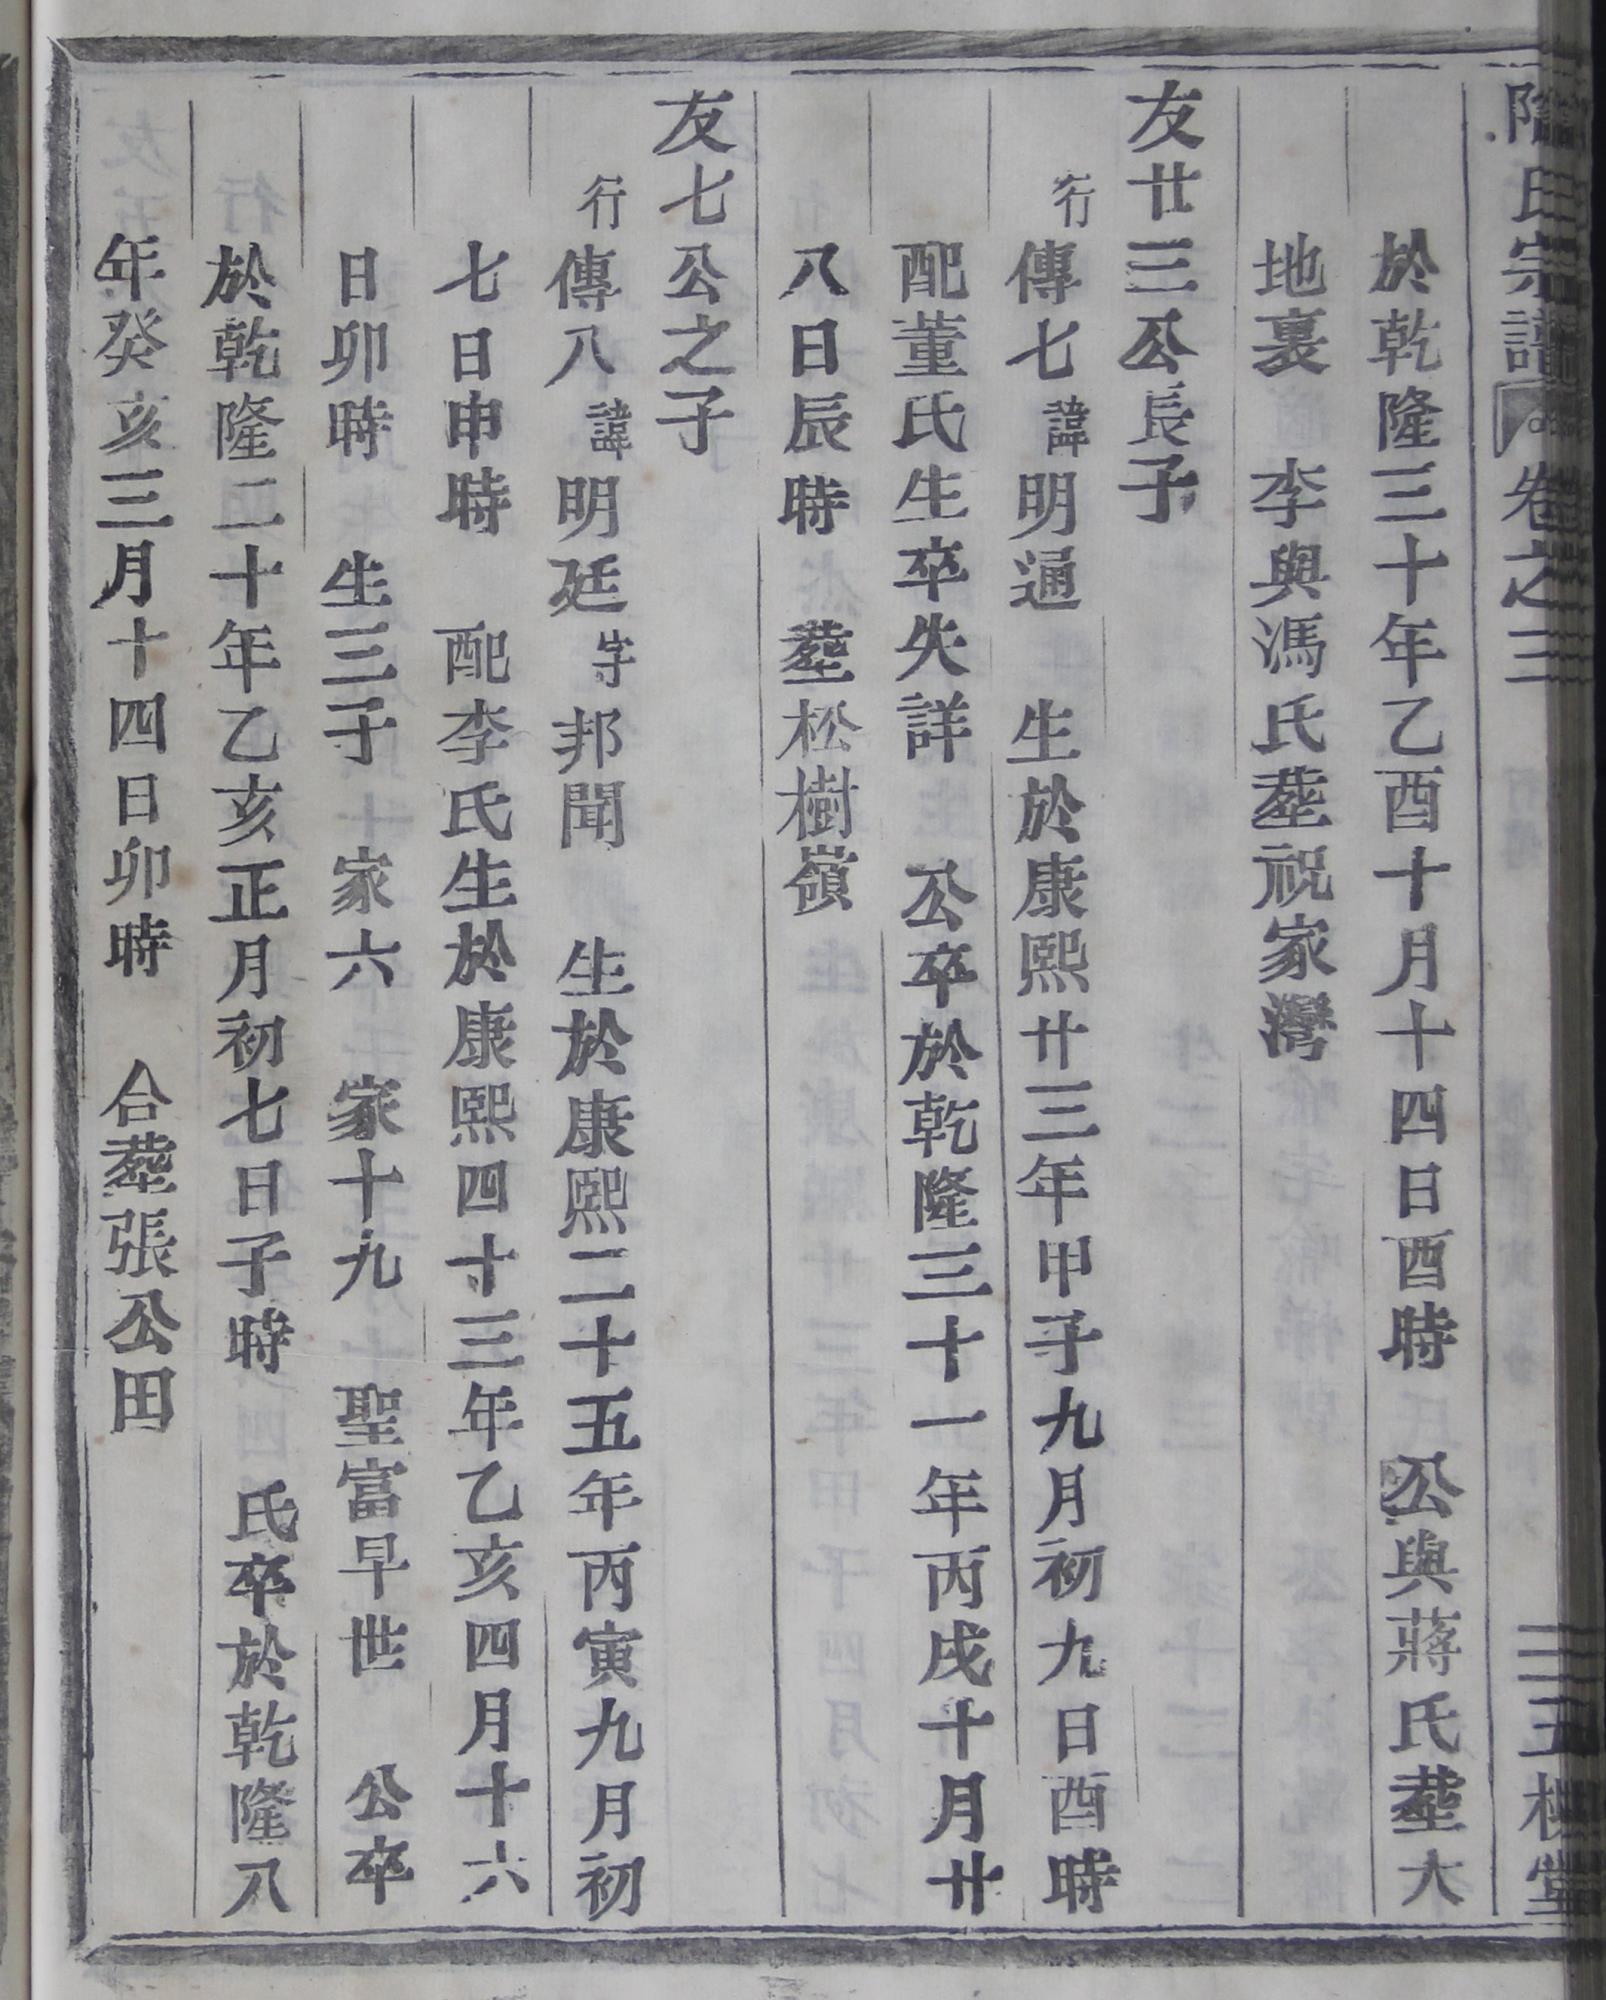 氏宗譜 卷之三 三五槐堂
於乾隆三十年乙酉十月十四日酉時 公與蔣氏塟大
地裏 李與馮氏塟祝家灣
友廿三公長子
行傳七諱明通 生於康熙廿三年甲子九月初九日酉時
配董氏生卒失詳 公卒於乾隆三十一年丙戌十月廿
八日辰時 塟松樹嶺
友七公之子
行傳八諱明廷字邦聞 生於康熙二十五年丙寅九月初
七日申時 配李氏生於康熙四十三年乙亥四月十六
日卯時 生三子 家六 家十九 聖富早世 公卒
於乾隆二十年乙亥正月初七日子時 氏卒於乾隆八
年癸亥三月十四日卯時 合塟張公田